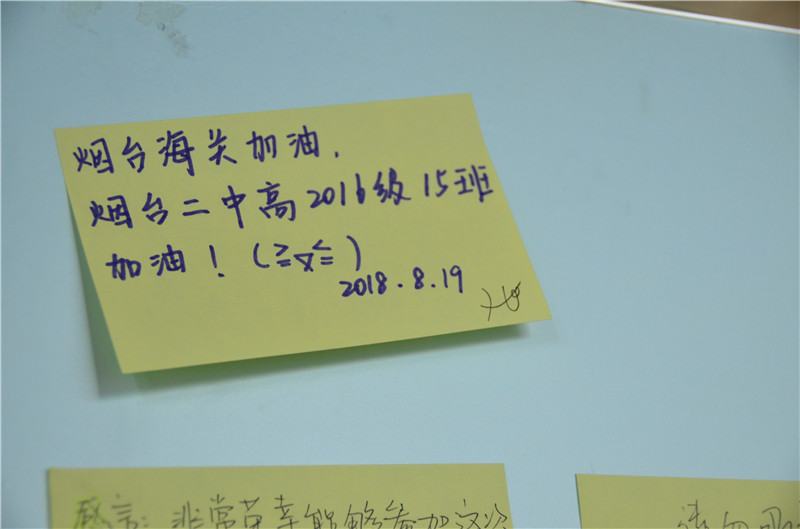 烟台海关加油.
烟台二中高2016级15班
加油！(≧▽≦)
2018.8.19
感言：非常荣幸能够参加这次